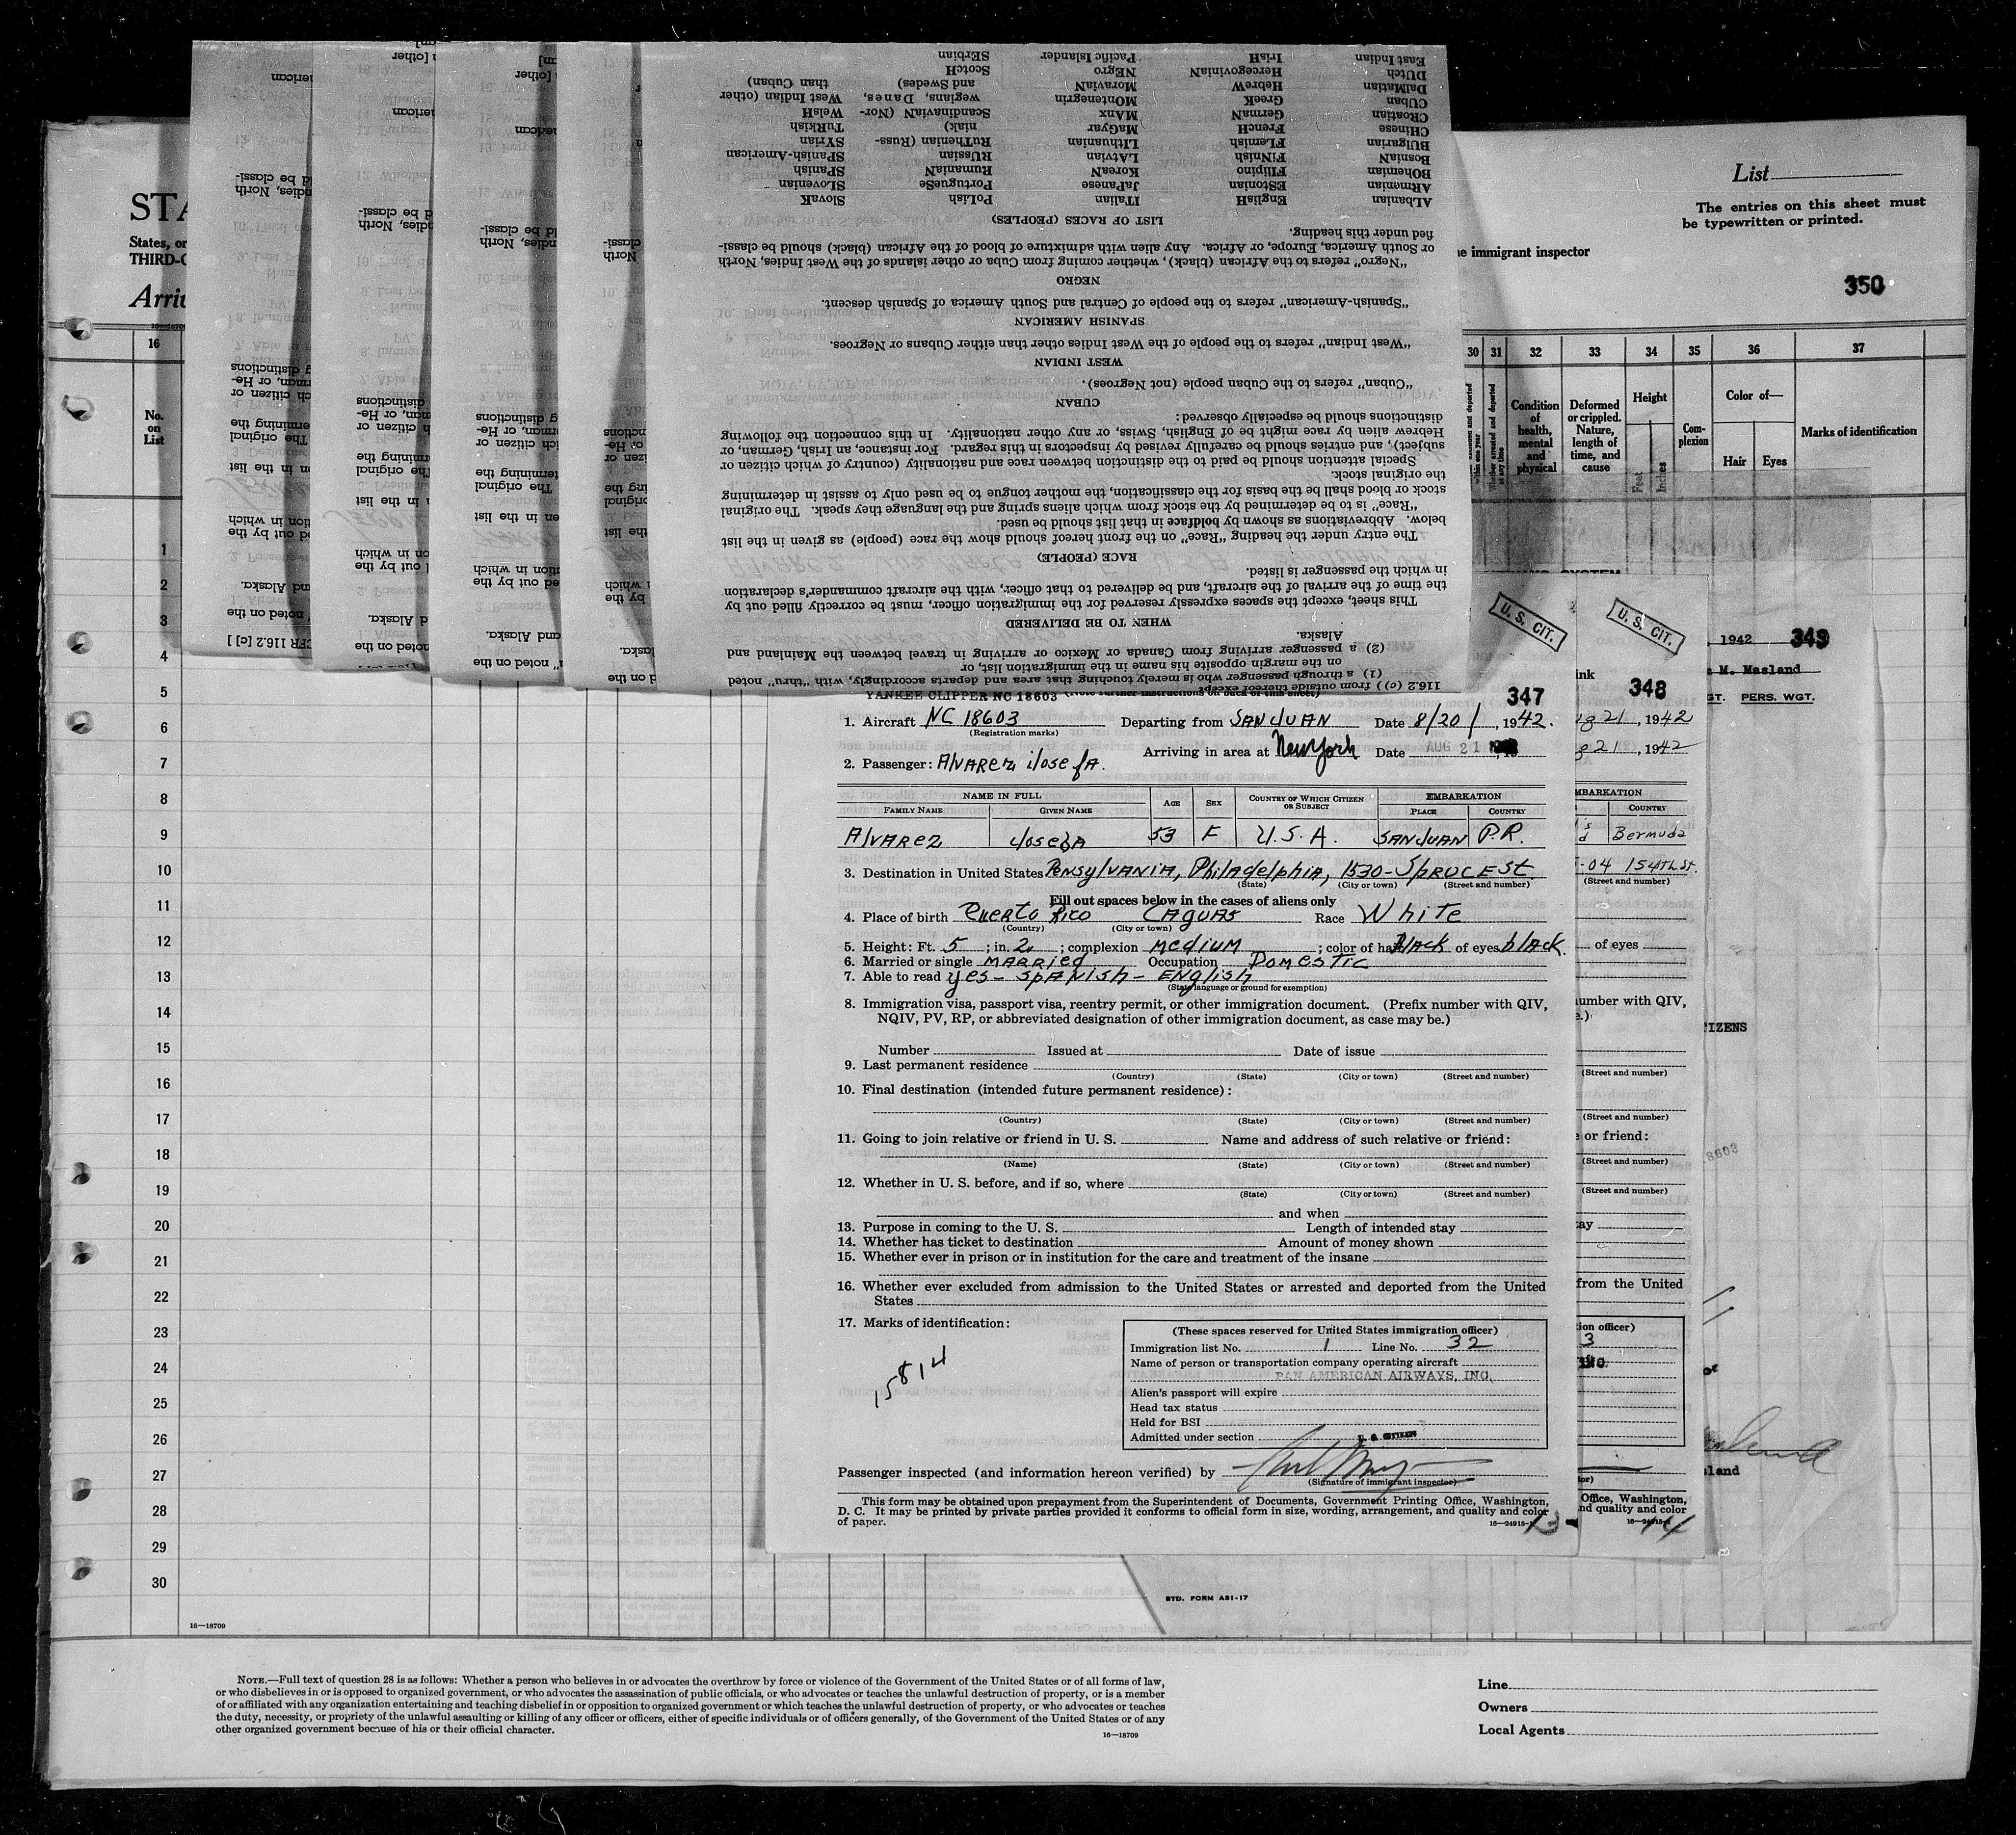 List
The entries on this sheet must
be typewritten or printed.
STA
States, or
THIRD-C
Arri
e immigrant inspector
350
16—18709
16
30 31 32 33 34 35 36 37
No.
on
List
Condition
of
health,
mental
and
physical
Deformed
or crippled.
Nature,
length of
time, and
cause
Height
Feet
Inches
Com-
plexion
Color of—
Hair
Eyes
Marks of identification
1
2
3
4
5
6
7
8
9
10
11
12
13
14
15
16
17
18
19
20
21
22
23
24
25
26
27
28
29
30
116.2 (c)) from outside thereof except
(1) a through passenger who is merely touching that area and departs accordingly, with "thru" noted
on the margin opposite his name in the immigration list, or
(2) a passenger arriving from Canada or Mexico or arriving in travel between the Mainland and
Alaska.
WHEN TO BE DELIVERED
This sheet, except the spaces expressly reserved for the immigration officer, must be correctly filled out by
the time of the arrival of the aircraft, and be delivered to that officer, with the aircraft commander's declaration
in which the passenger is listed.
RACE (PEOPLE)
The entry under the heading "Race" on the front hereof should show the race (people) as given in the list
below. Abbreviations as shown by boldface in that list should be used.
"Race" is to be determined by the stock from which aliens spring and the language they speak. The original
stock or blood shall be the basis for the classification, the mother tongue to be used only to assist in determining
the original stock.
Special attention should be paid to the distinction between race and nationality (country of which citizen or
subject), and entries should be carefully revised by inspectors in this regard. For instance, an Irish, German, or
Hebrew alien by race might be of English, Swiss, or any other nationality. In this connection the following
distinctions should be especially observed:
CUBAN
"Cuban" refers to the Cuban people (not Negroes).
WEST INDIAN
"West Indian" refers to the people of the West Indies other than either Cubans or Negroes.
SPANISH AMERICAN
"Spanish-American" refers to the people of Central and South America of Spanish descent.
NEGRO
"Negro" refers to the African (black), whether coming from Cuba or other islands of the West Indies, North
or South America, Europe, or Africa. Any alien with admixture of blood of the African (black) should be classi-
fied under this heading.
LIST OF RACES (PEOPLES)
Albanian EnglisH ITalian PoLish SlovaK
ARmenian EStonian JaPanese PortugueSe SLovenian
BOhemian FIlipino KoreaN RumaniaN SPanish
BosniaN FINnish LATvian RUSsian SPanish-American
BUlgarian FLemish LIthuanian RuThenian (Russ- SYrian
CHinese FrencH MaGyar niak) TuRKish
CROatian GermaN MAnx ScandinaviaN (Nor- WelsH
CUban GreeK MOntenegrin wegians, Danes, West Indian (other
DalMatian HebreW MoraviaN and Swedes) than Cuban)
DUtch HercegoviniaN NEgro ScotcH
East Indian IrisH Pacific Islander SErbian
YANKEE CLIPPER NC 18603
347
1. Aircraft NC 18603 Departing from SAN JUAN Date 8/20/, 1942.
(Registration marks)
Arriving in area at New York Date AUG 21
2. Passenger: ALVAREZ JOSEFA.
NAME IN FULL AGE SEX COUNTRY OF WHICH CITIZEN OR SUBJECT EMBARKATION
FAMILY NAME GIVEN NAME PLACE COUNTRY
ALVAREZ JOSEFA 53 F U.S.A. SAN JUAN P.R.
3. Destination in United States Pensylvania, Philadelphia, 1530-Spruce St.
(State) (City or town) (Street and number)
Fill out spaces below in the cases of aliens only
4. Place of birth Puerto Rico Caguas Race White
(Country) (City or town)
5. Height: Ft. 5; in. 2; complexion medium; color of hair black of eyes black.
6. Married or single MARRIED Occupation Domestic
7. Able to read yes - Spanish - English
(State language or ground for exemption)
8. Immigration visa, passport visa, reentry permit, or other immigration document. (Prefix number with QIV,
NQIV, PV, RP, or abbreviated designation of other immigration document, as case may be.)
Number Issued at Date of issue
9. Last permanent residence
(Country) (State) (City or town) (Street and number)
10. Final destination (intended future permanent residence):
(Country) (State) (City or town) (Street and number)
11. Going to join relative or friend in U. S. Name and address of such relative or friend:
(Name) (State) (City or town) (Street and number)
12. Whether in U. S. before, and if so, where
(State) (City or town) (Street and number)
and when
13. Purpose in coming to the U. S. Length of intended stay
14. Whether has ticket to destination Amount of money shown
15. Whether ever in prison or in institution for the care and treatment of the insane
16. Whether ever excluded from admission to the United States or arrested and deported from the United
States
17. Marks of identification:
15814
(These spaces reserved for United States immigration officer)
Immigration list No. 1 Line No. 32
Name of person or transportation company operating aircraft
PAN AMERICAN AIRWAYS, INC.
Alien's passport will expire
Head tax status
Held for BSI
Admitted under section U. S. CITIZEN
Passenger inspected (and information hereon verified) by
(Signature of immigrant inspector)
This form may be obtained upon prepayment from the Superintendent of Documents, Government Printing Office, Washington,
D. C. It may be printed by private parties provided it conforms to official form in size, wording, arrangement, and quality and color
of paper.
16—24915-1
13
U. S. CIT.
U. S. CIT.
348
21, 1942
21, 1942
MBARKATION
COUNTRY
Bermuda
-04 154th St.
(Street and number)
of eyes
umber with QIV,
(Street and number)
(Street and number)
or friend:
(Street and number)
(Street and number)
from the United
ion officer)
3
Office, Washington,
nd quality and color
14
1942 349
M. Masland
PERS. WGT.
TIZENS
18603
sland
STD. FORM A31-17
16—18709
NOTE.—Full text of question 28 is as follows: Whether a person who believes in or advocates the overthrow by force or violence of the Government of the United States or of all forms of law,
or who disbelieves in or is opposed to organized government, or who advocates the assassination of public officials, or who advocates or teaches the unlawful destruction of property, or is a member
of or affiliated with any organization entertaining and teaching disbelief in or opposition to organized government or which teaches the unlawful destruction of property, or who advocates or teaches
the duty, necessity, or propriety of the unlawful assaulting or killing of any officer or officers, either of specific individuals or of officers generally, of the Government of the United States or of any
other organized government because of his or their official character.
16—18709
Line
Owners
Local Agents